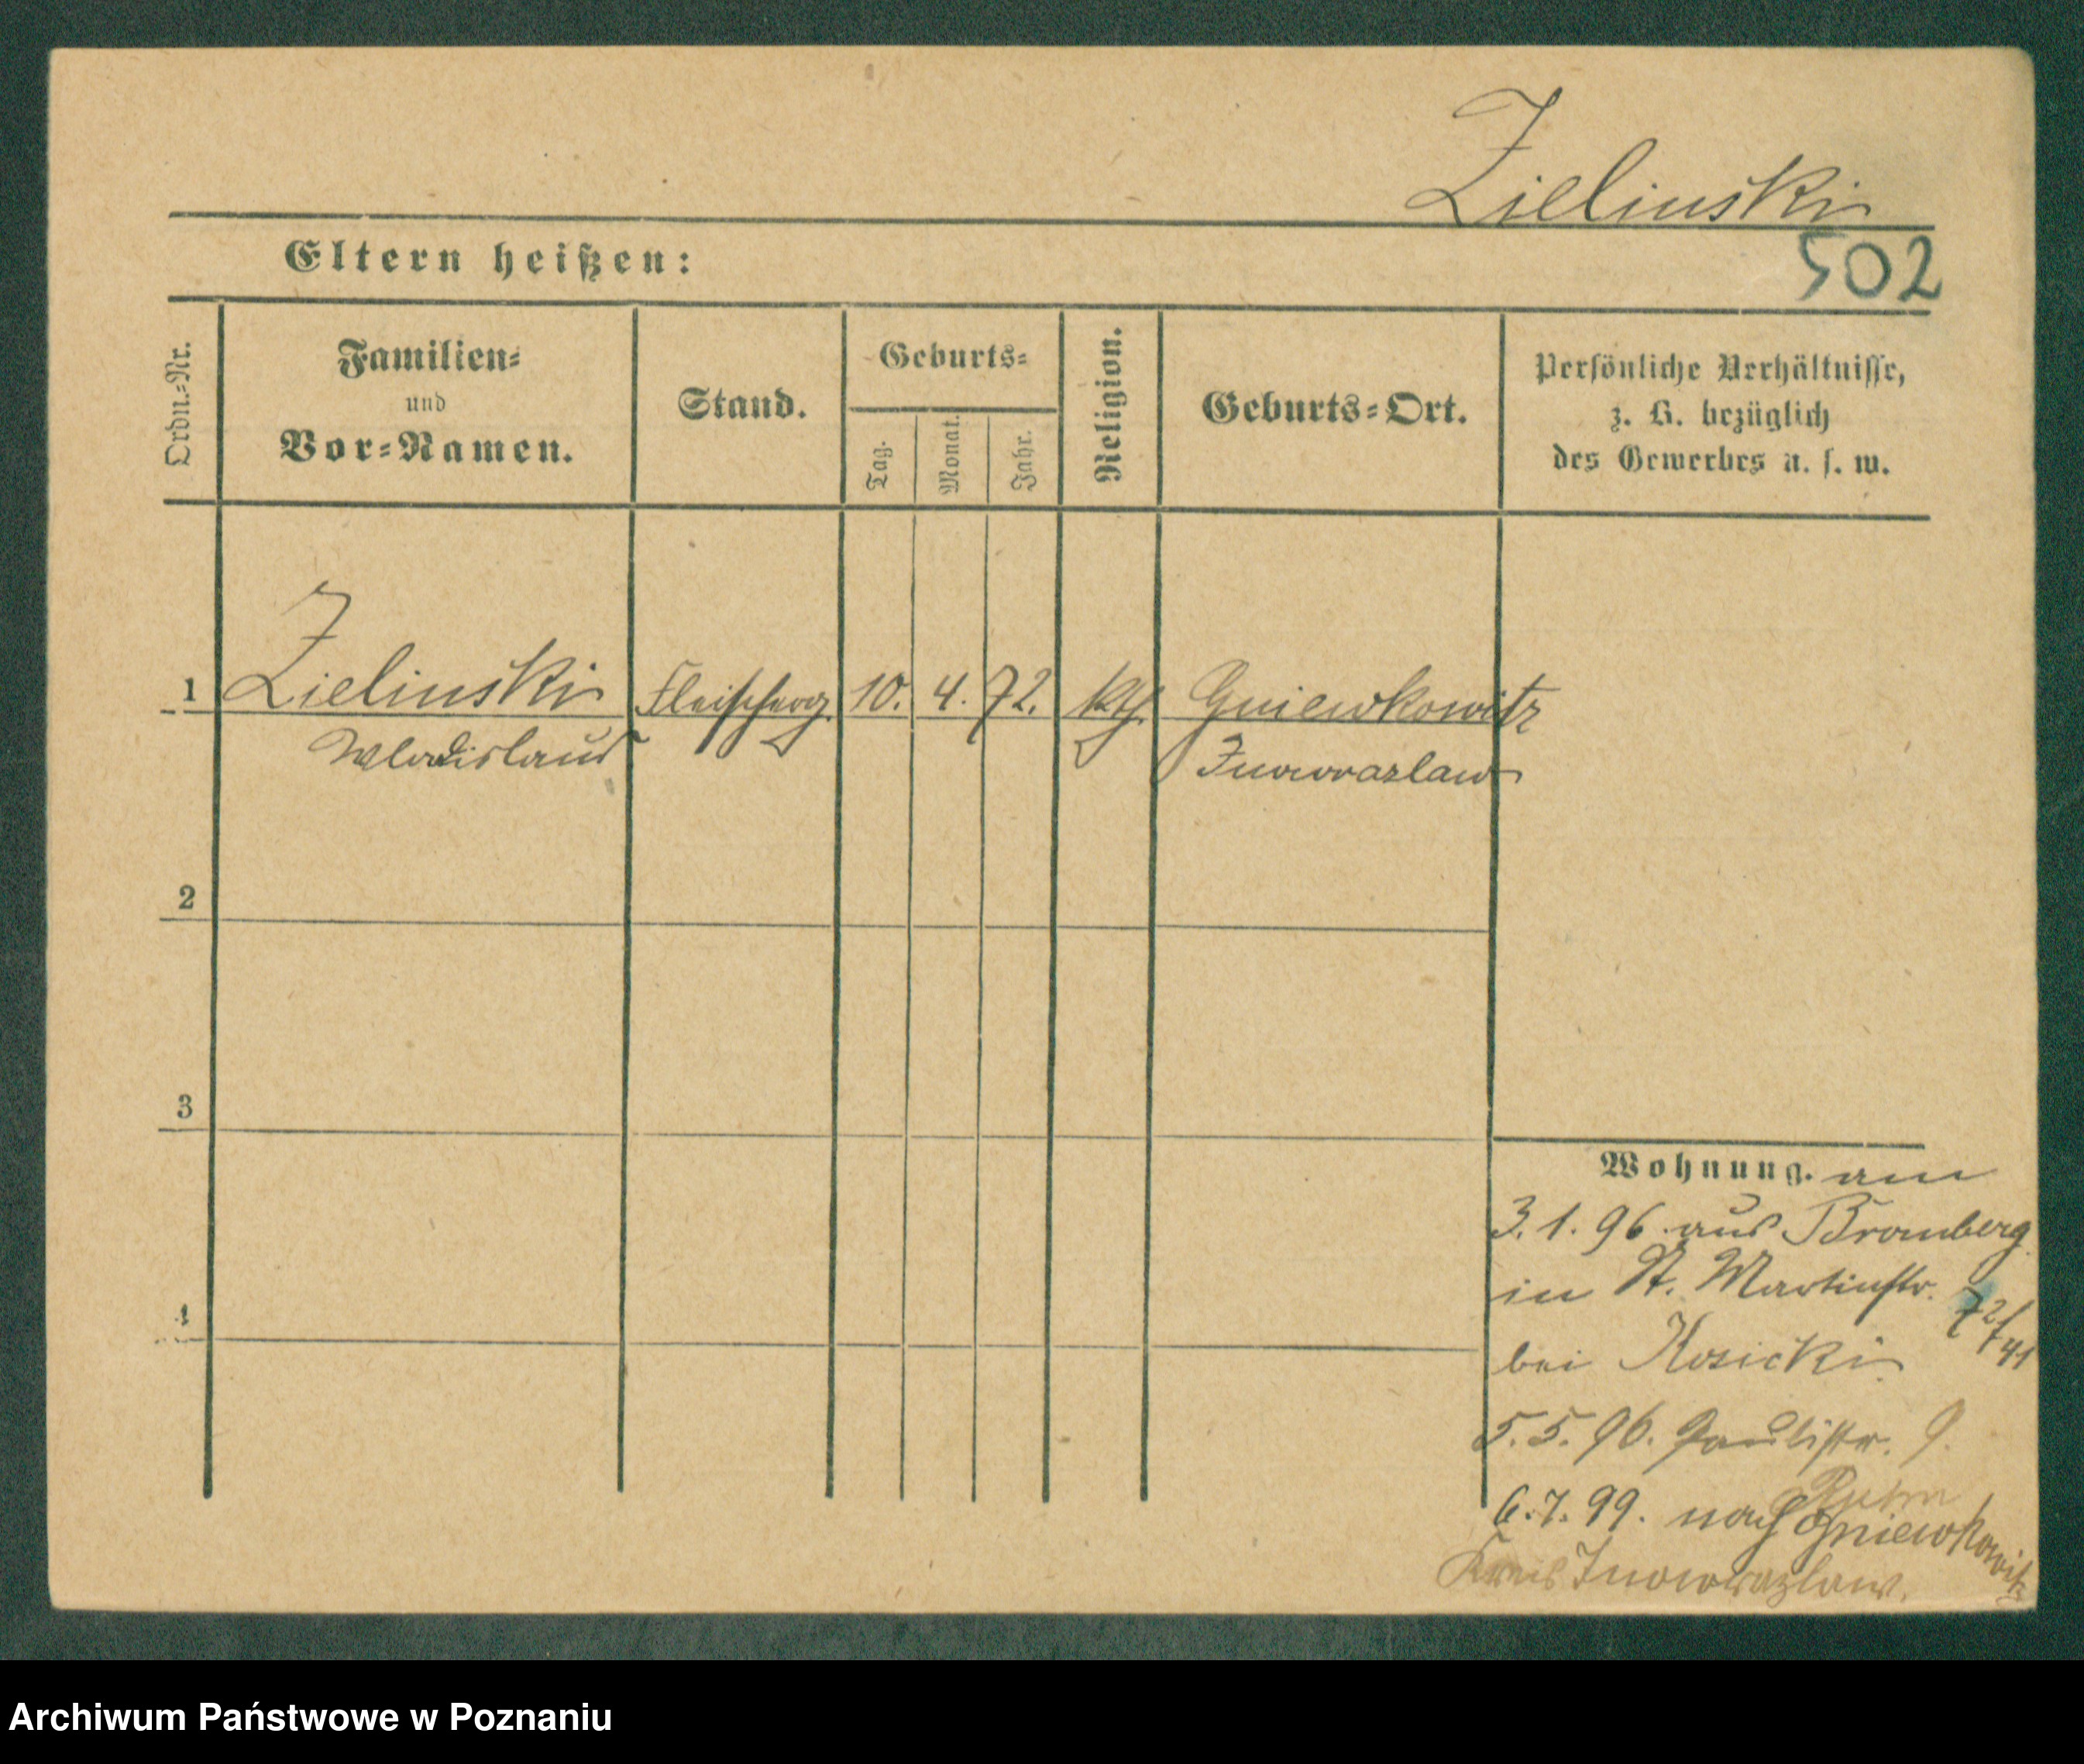 Zielinski
502
Eltern heißen:
Ordn.=Nr.
Familien=
und
Vor=Namen.
Stand.
Geburts=
Tag.
Monat.
Jahr.
Religion.
Geburts=Ort.
Persönliche Verhältnisse,
z. B. bezüglich
des Gewerbes u. s. w.
1
Zielinski
Wladislaus
Fleischerg.
10.
4.
72.
kth.
Gniewkowitz
Inowrazlaw
2
3
4
Wohnung. am
3.1.96 aus Bromberg
in St. Martinstr. 72/41
bei Kosicki
5.5.96. Paulistr. 9.
6.7.99. nach Gniewkowitz
Kreis Inowrazlaw.
Archiwum Państwowe w Poznaniu